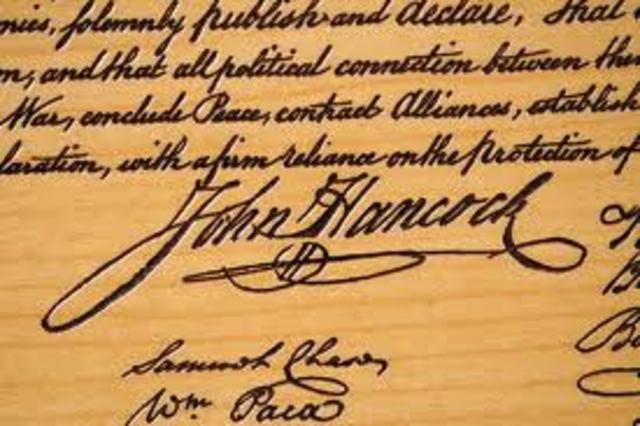 solemnly publish and declare, That
and that all political connection between
War, conclude Peace, contract Alliances, establish
laration, with a firm reliance on the protection of
John Hancock
Samuel Chase
Wm Paca